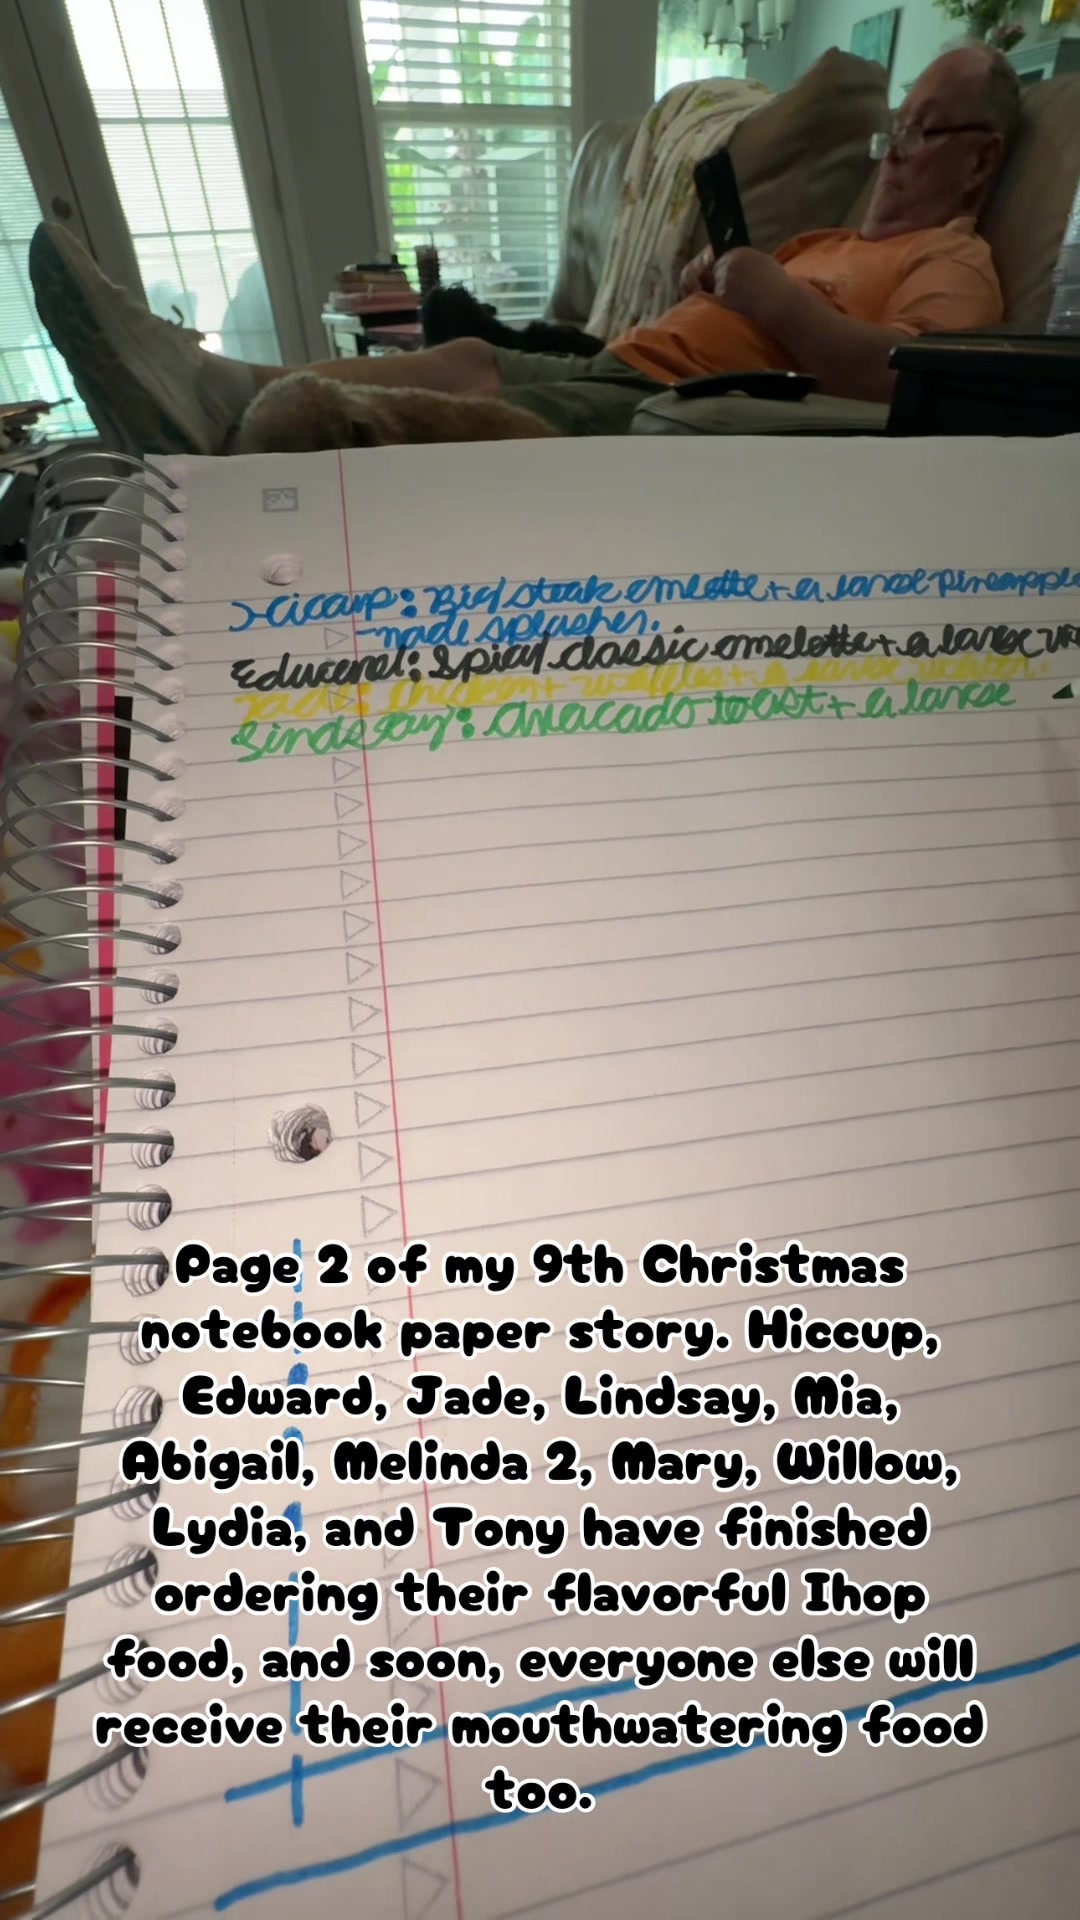 Hiccup: Big steak omelette + a large pineapple
-nade splasher.
Edward: Spicy classic omelette + a large
Jade: chicken + waffles + a large
Lindsay: avacado toast + a large
Page 2 of my 9th Christmas
notebook paper story. Hiccup,
Edward, Jade, Lindsay, Mia,
Abigail, Melinda 2, Mary, Willow,
Lydia, and Tony have finished
ordering their flavorful Ihop
food, and soon, everyone else will
receive their mouthwatering food
too.